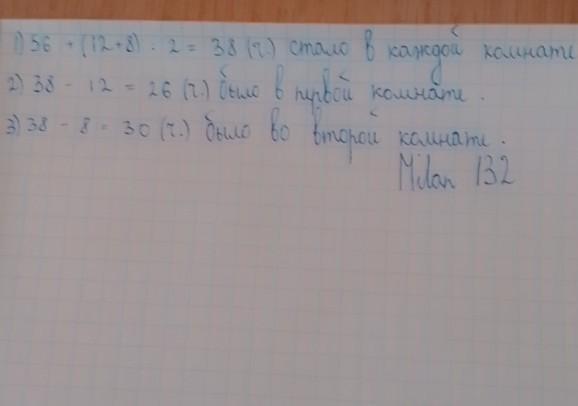 1) 56 + (12+8) . 2 = 38 (ч.) стало в каждой комнате
2) 38 - 12 = 26 (ч.) было в первой комнате.
3) 38 - 8 = 30 (ч.) было во второй комнате.
Milan 132